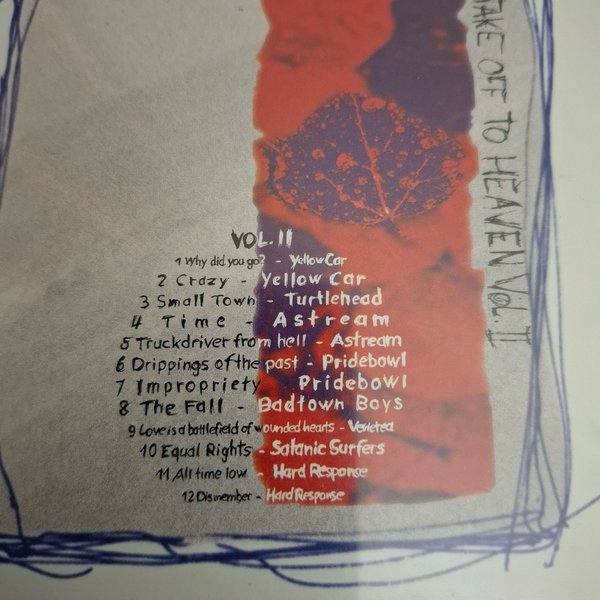 TAKE OFF TO HEAVEN VOL. II
VOL. II
1 Why did you go? - Yellow Car
2 Crazy - Yellow Car
3 Small Town - Turtlehead
4 Time - Astream
5 Truckdriver from hell - Astream
6 Drippings of the past - Pridebowl
7 Impropriety Pridebowl
8 The Fall - Badtown Boys
9 Love is a battlefield of wounded hearts - Venerea
10 Equal Rights - Satanic Surfers
11 All time low Hard Response
12 Dismember - Hard Response